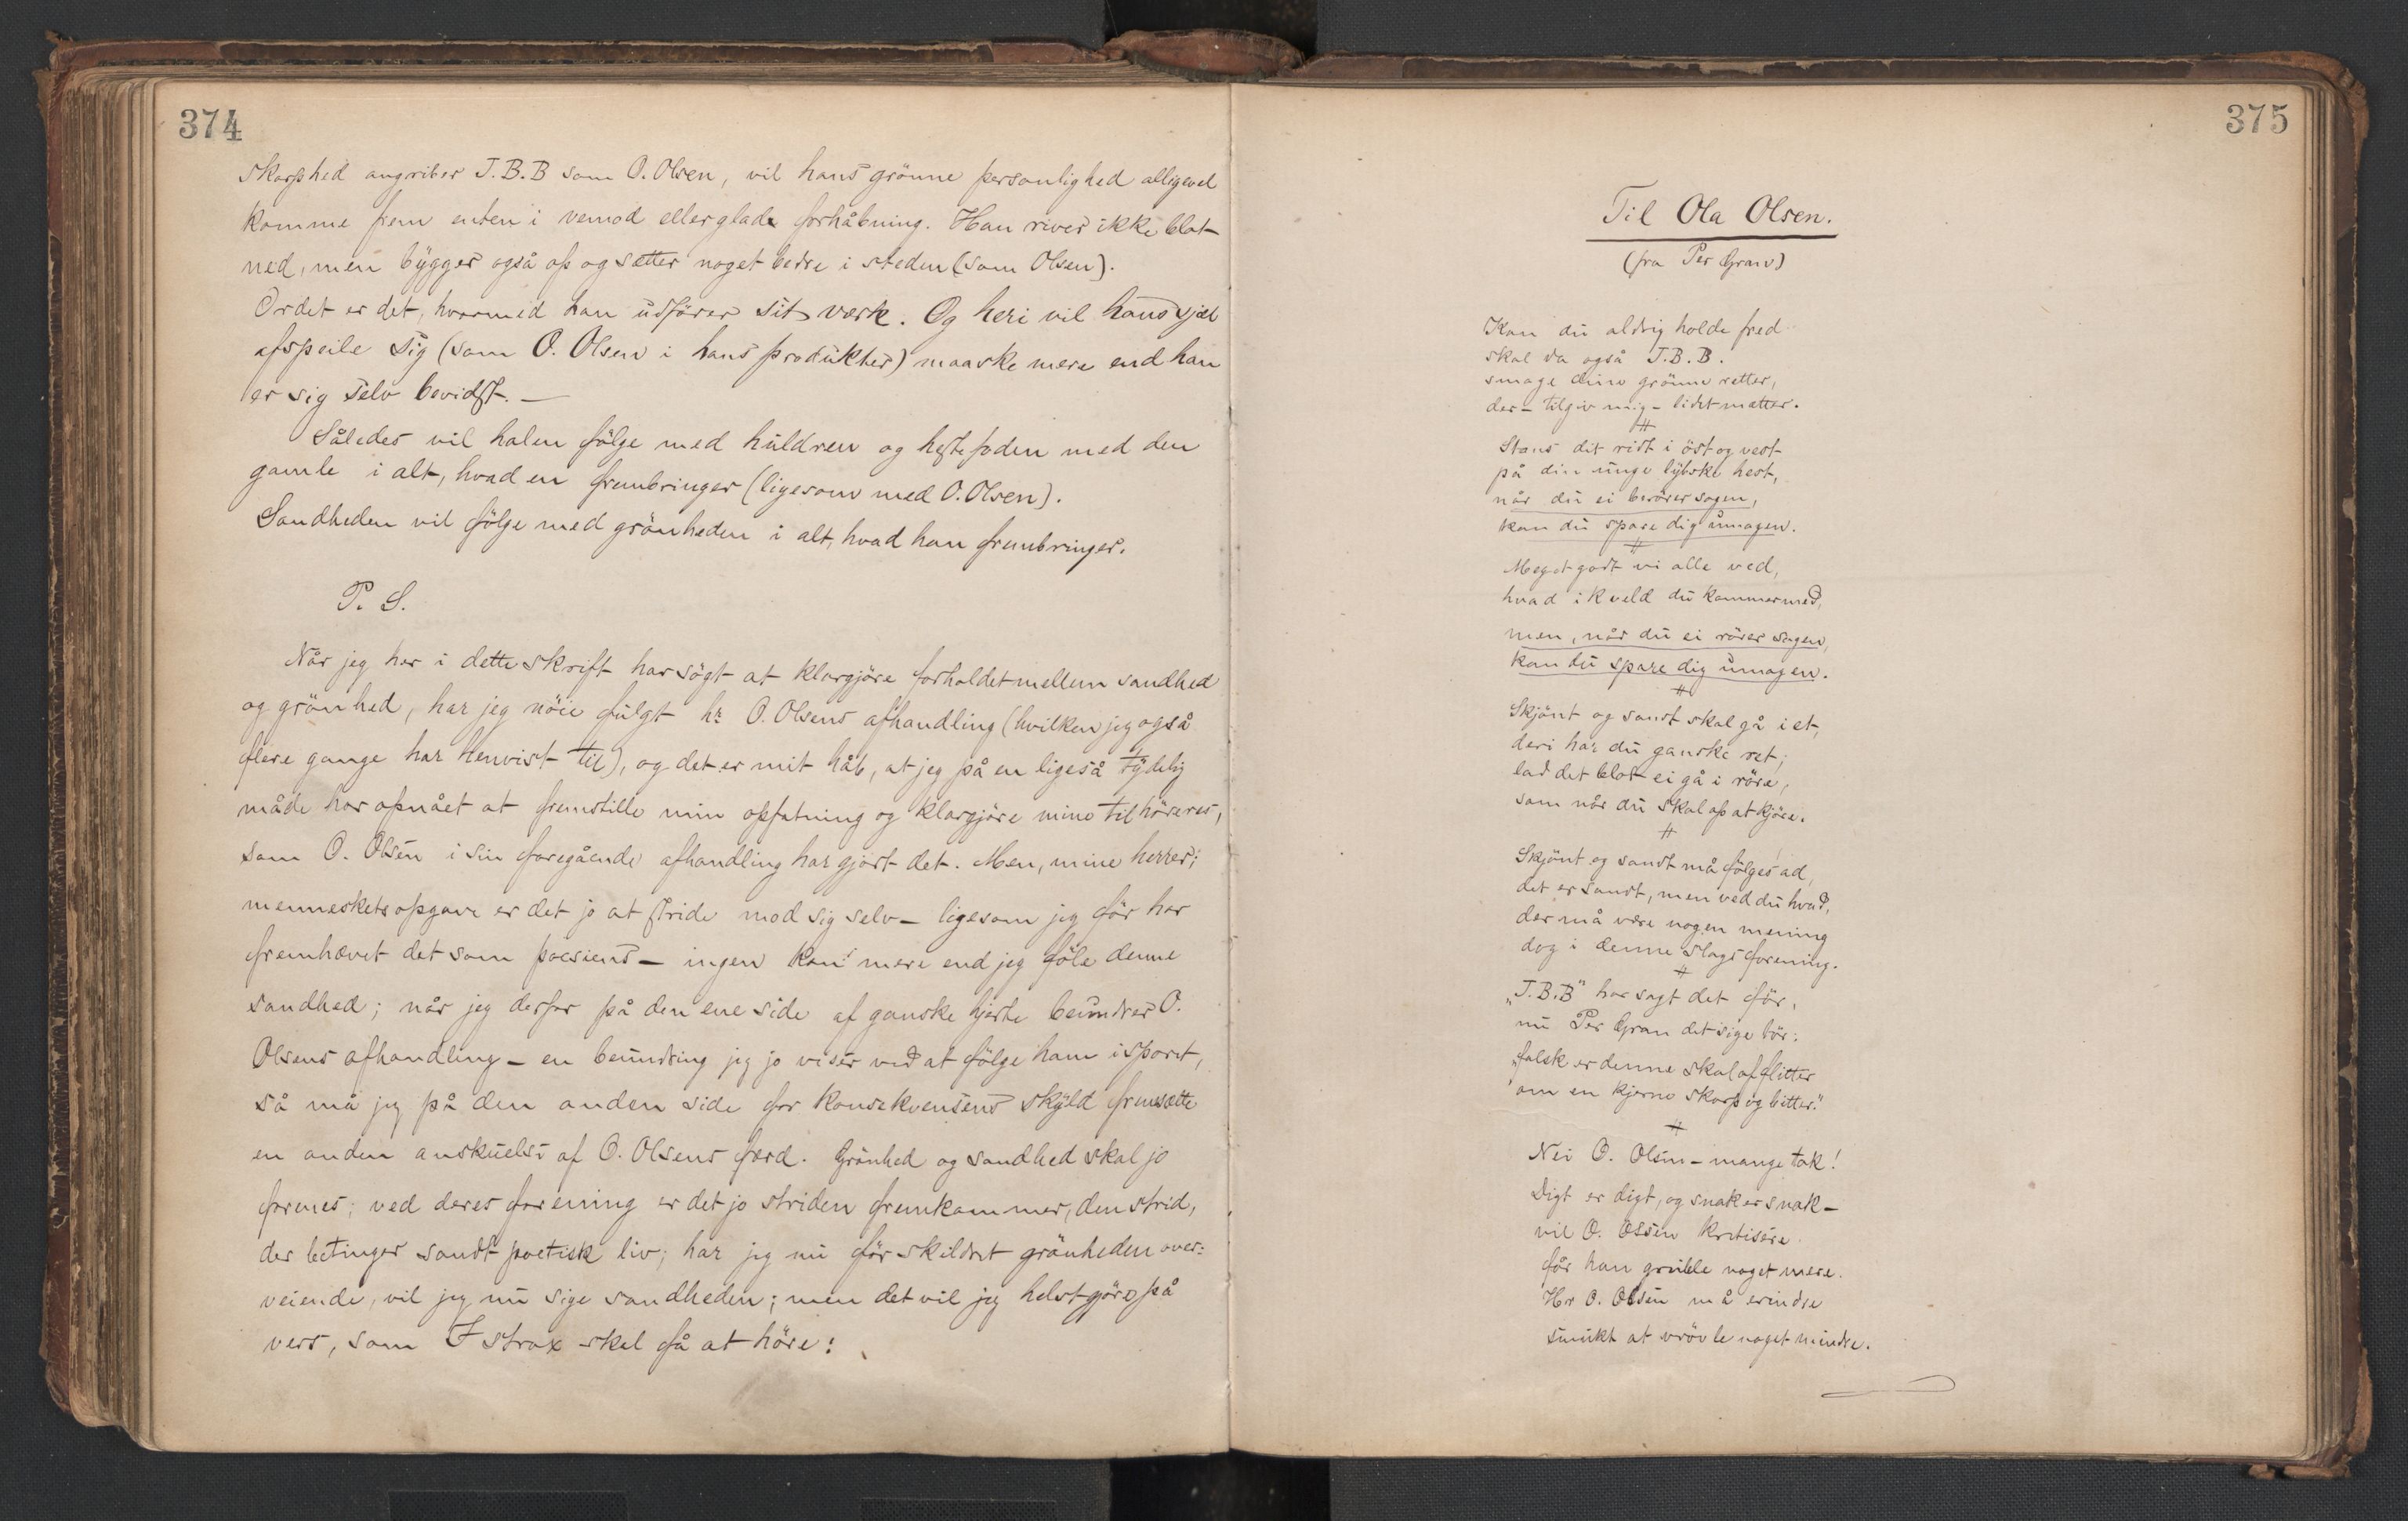 374
skarphed angriber J.B.B som O. Olsen, vil hans grönne personlighed alligevel
komme frem enten i vemod eller glade forhåbning. Han river ikke blot
ned, men bygger også op og sætter noget bedre i steden (som Olsen).
Ordet er det, hvormed han udförer sit værk. Og heri vil hans sjæl
afspeile sig (som O. Olsen i hans produkter) maaske mere end han
er sig selv bevidst. —
Således vil halen fölge med huldren og hestefoden med den
gamle i alt, hvad en frembringer (ligesom med O. Olsen).
Sandheden vil fölge med grönheden i alt, hvad han frembringer.
P. S.
Når jeg her i dette skrift har sögt at klargjöre forholdet mellem sandhed
og grönhed, har jeg nöie fulgt hr. O. Olsens afhandling (hvilken jeg også
flere gange har henvist til), og det er mit håb, at jeg på en ligeså tydelig
måde har opnået at fremstille min opfatning og klargjöre mine tilhörere,
som O. Olsen i sin foregående afhandling har gjort det. Men, mine herrer;
menneskets opgave er det jo at stride mod sig selv — ligesom jeg för har
fremhævet det som poesiens — ingen kan mere end jeg föle denne
sandhed; når jeg derfor på den ene side af ganske hjerte beundrer O.
Olsens afhandling — en beundring jeg jo viser ved at fölge ham i sporet,
så må jeg på den anden side for konsekvensens skyld fremsætte
en anden anskuelse af O. Olsens færd. Grönhed og sandhed skal jo
forenes; ved deres forening er det jo striden fremkommer, den strid,
der betinger sandt poetisk liv; har jeg nu för skildret grönheden over:
veiende, vil jeg nu sige sandheden; men det vil jeg helst gjöre på
vers, som I strax skal få at höre:
375
Til Ola Olsen.
(fra Per Gran)
Kan du aldrig holde fred
skal da også J.B.B.
smage dine grönne retter,
der — tilgiv mig — lidet mætter.
#
Stans dit ridt i öst og vest
på din unge lybske hest,
når du ei berörer sagen,
kan du spare dig umagen.
#
Meget godt vi alle ved,
hvad i kveld du kommer med,
men, når du ei rörer sagen,
kan du spare dig umagen.
#
Skjönt og sandt skal gå i et,
deri har du ganske ret;
lad det blot ei gå i röre,
som når du skal op at kjöre.
#
Skjönt og sandt må fölges ad,
det er sandt, men ved du hvad,
der må være nogen mening
dog i denne slags forening.
#
"J.B.B" har sagt det för,
nu Per Gran det sige bör:
"falsk er denne skal af flitter
om en kjerne skarp og bitter."
#
Nei O. Olsen — mange tak!
Digt er digt, og snak er snak —
vil O. Olsen kritisere
får han gruble noget mere.
Hr O. Olsen må erindre
smukt at vrövle noget mindre.